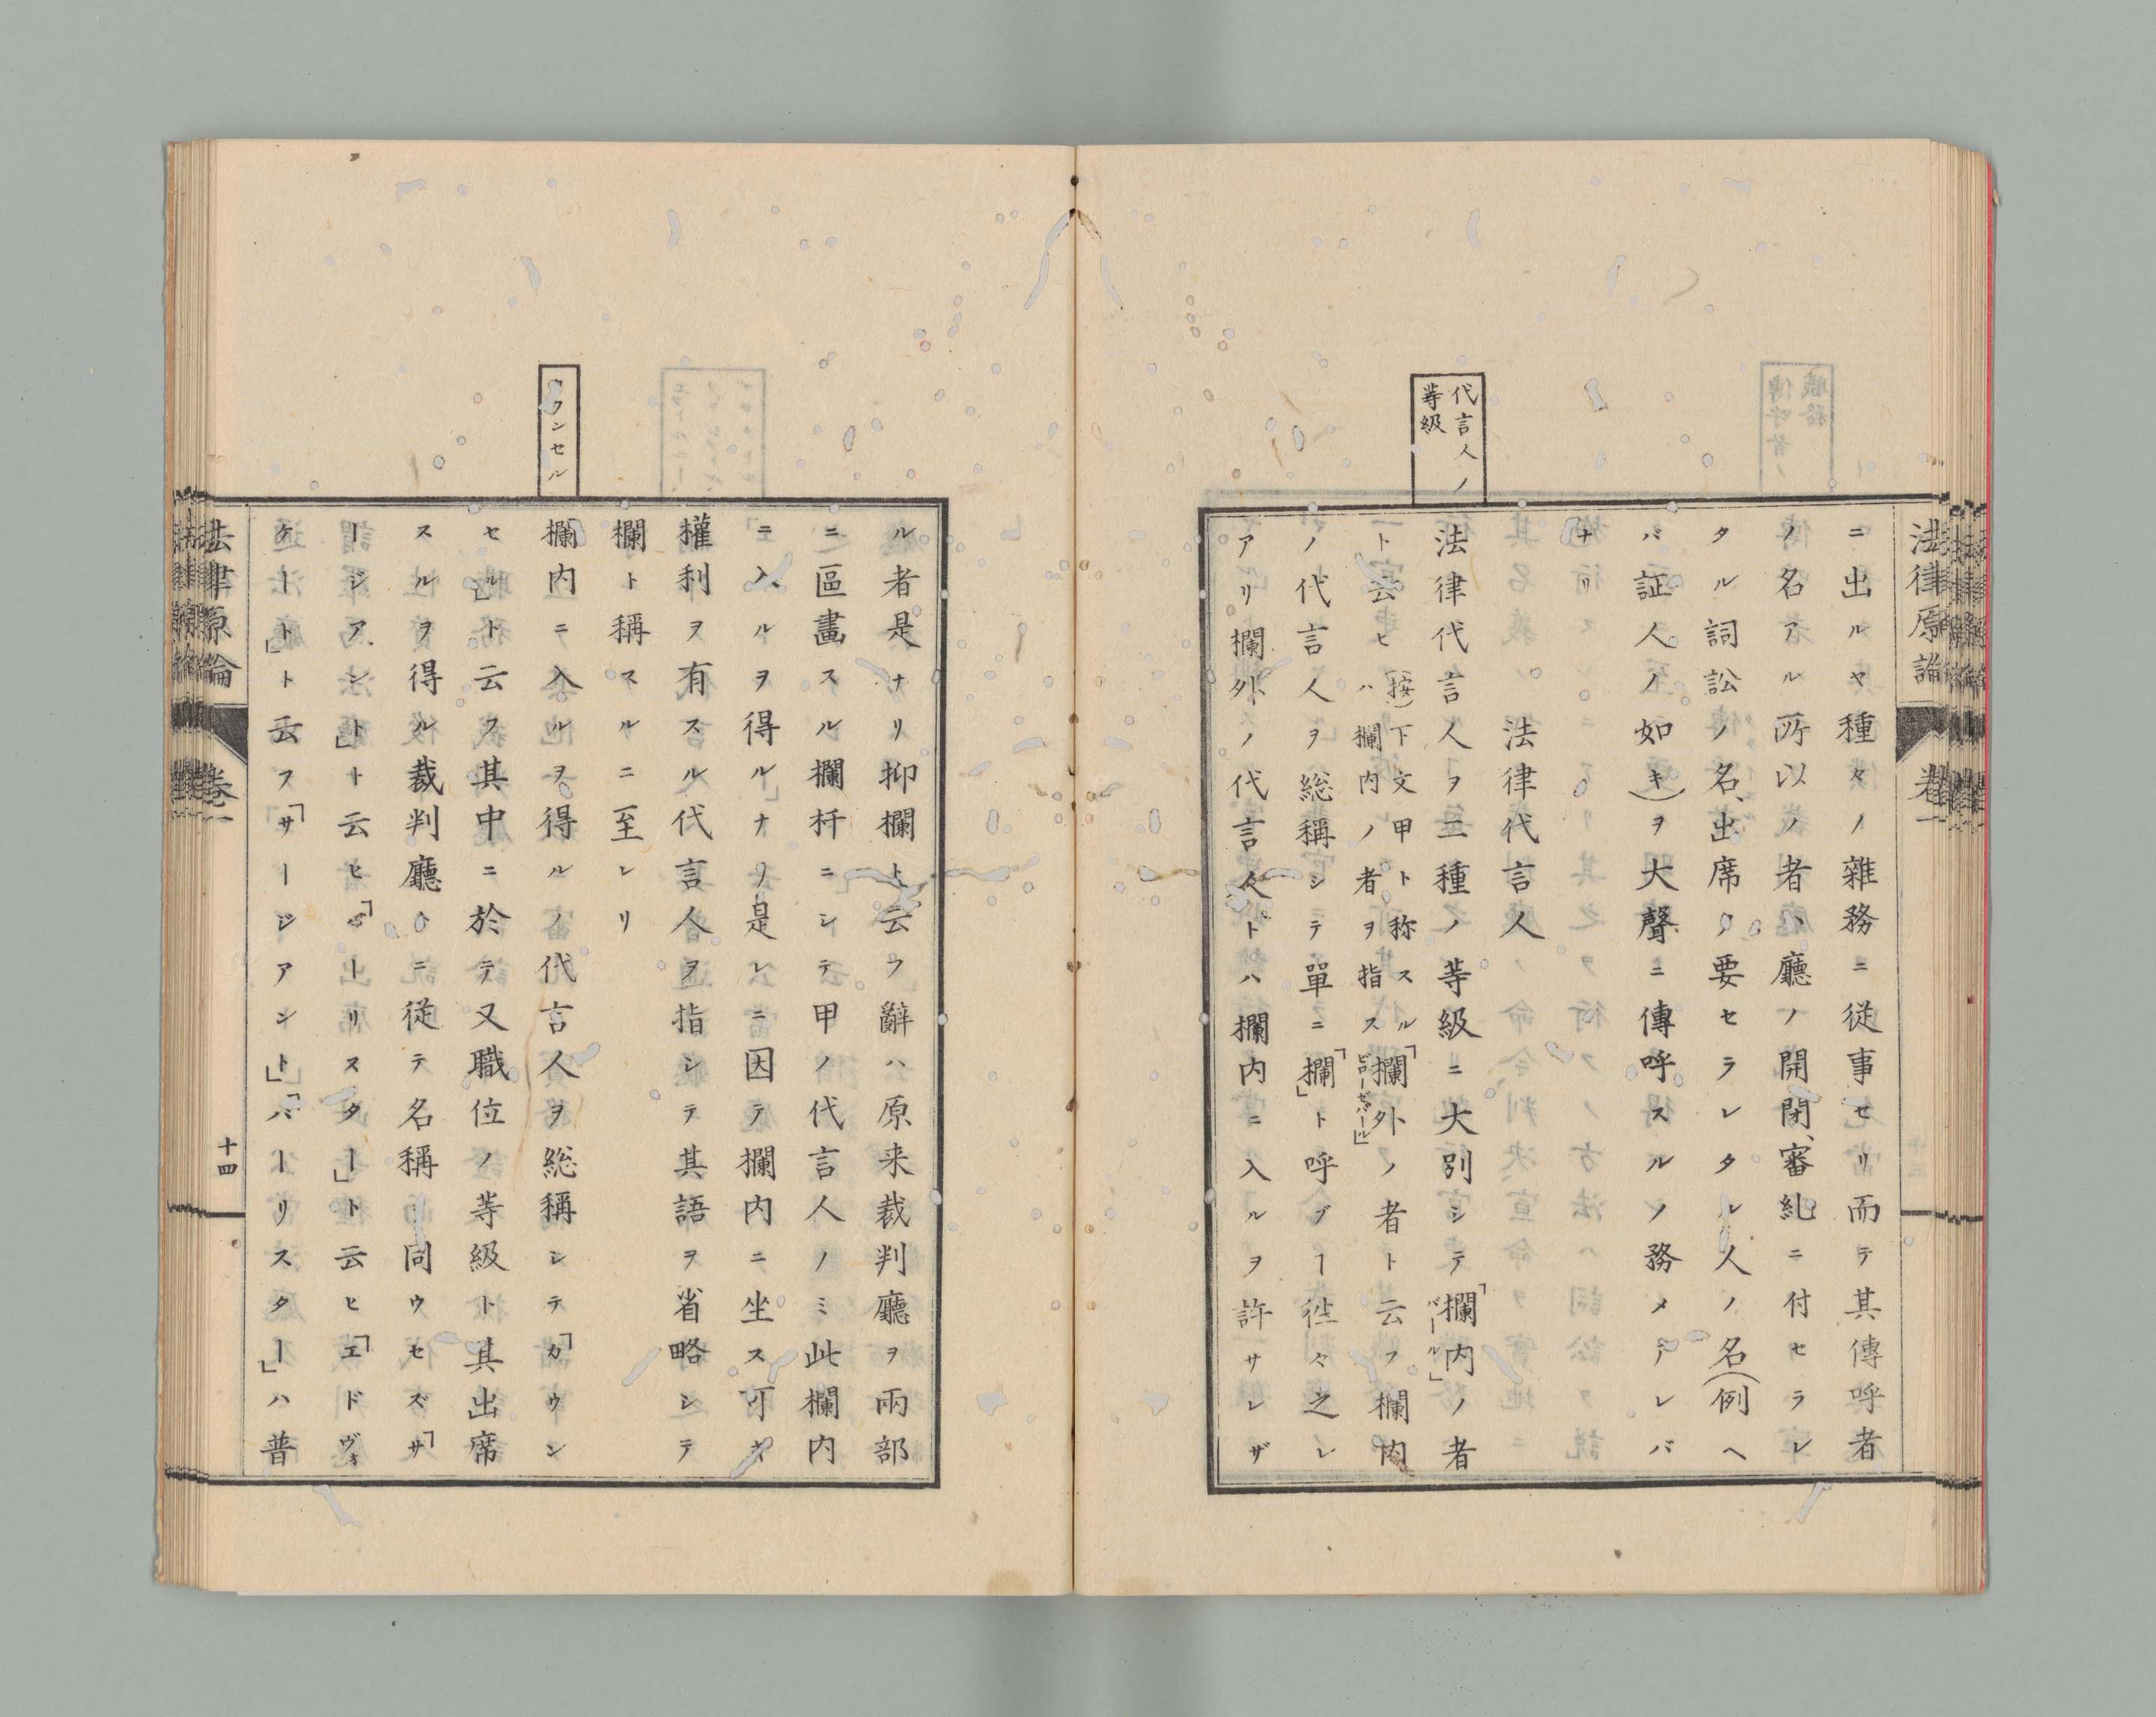 法律原論
卷一
ニ出ルヤ種々ノ雜務ニ従事セリ而テ其傳呼者
ノ名アル所以ノ者ハ廳ノ開閉、審糺ニ付セラレ
タル詞訟ノ名、出席ノ要セラレタル人ノ名(例ヘ
バ証人ノ如キ)ヲ大聲ニ傳呼スルノ務メアレバ
ナリ
法律代言人
代言人ノ
等級
法律代言人ヲ二種ノ等級ニ大別シテ「欄内ノ者
バール」
ト云ヒ(按)下文甲ト称スル
ハ欄内ノ者ヲ指ス
「欄外ノ者ト云フ欄内
ビローゼバール」
ノ代言人ヲ総稱シテ單ニ「欄」ト呼ブヿ徃々之レ
アリ欄外ノ代言人トハ欄内ニ入ルヲ許サレザ
ル者是ナリ抑欄ト云フ辭ハ原来裁判廳ヲ兩部
ニ區畫スル欄杆ニシテ甲ノ代言人ノミ此欄内
ニ入ルヲ得ルナリ是レニ因テ欄内ニ坐ス可キ
權利ヲ有スル代言人ヲ指シテ其語ヲ省略シテ
欄ト稱スルニ至レリ
ウンセル
欄内ニ入ルヲ得ルノ代言人ヲ総稱シテ「カウン
セル」ト云フ其中ニ於テ又職位ノ等級ト其出席
スルヲ得ル裁判廳トニ従テ名稱同ウセズ「サ
ージアント」ト云ヒ「バーリスター」ト云ヒ「エドヴォ
ケート」ト云フ「サージアント」「バーリスター」ハ普
法律原論
卷一
十四